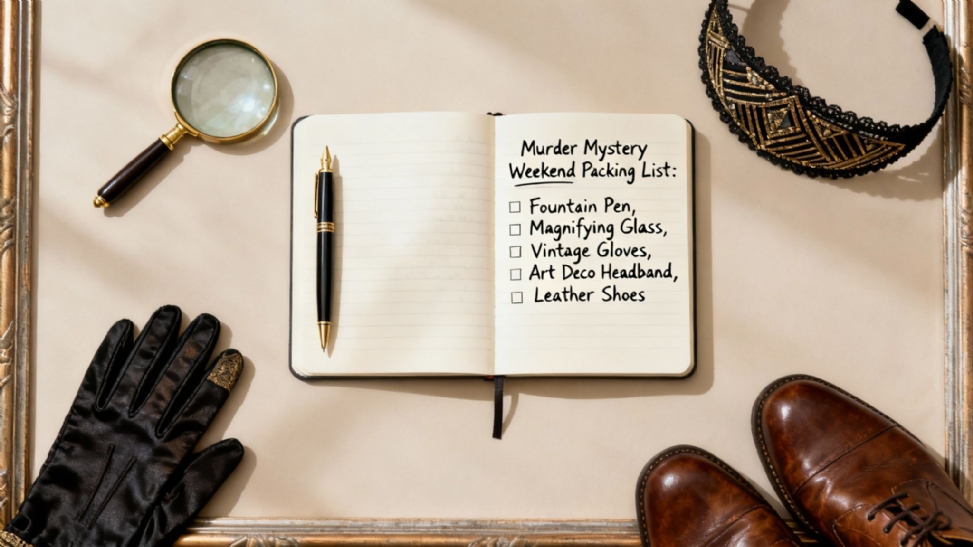 Murder Mystery
Weekend Packing List:
☐ Fountain Pen,
☐ Magnifying Glass,
☐ Vintage Gloves,
☐ Art Deco Headband,
☐ Leather Shoes